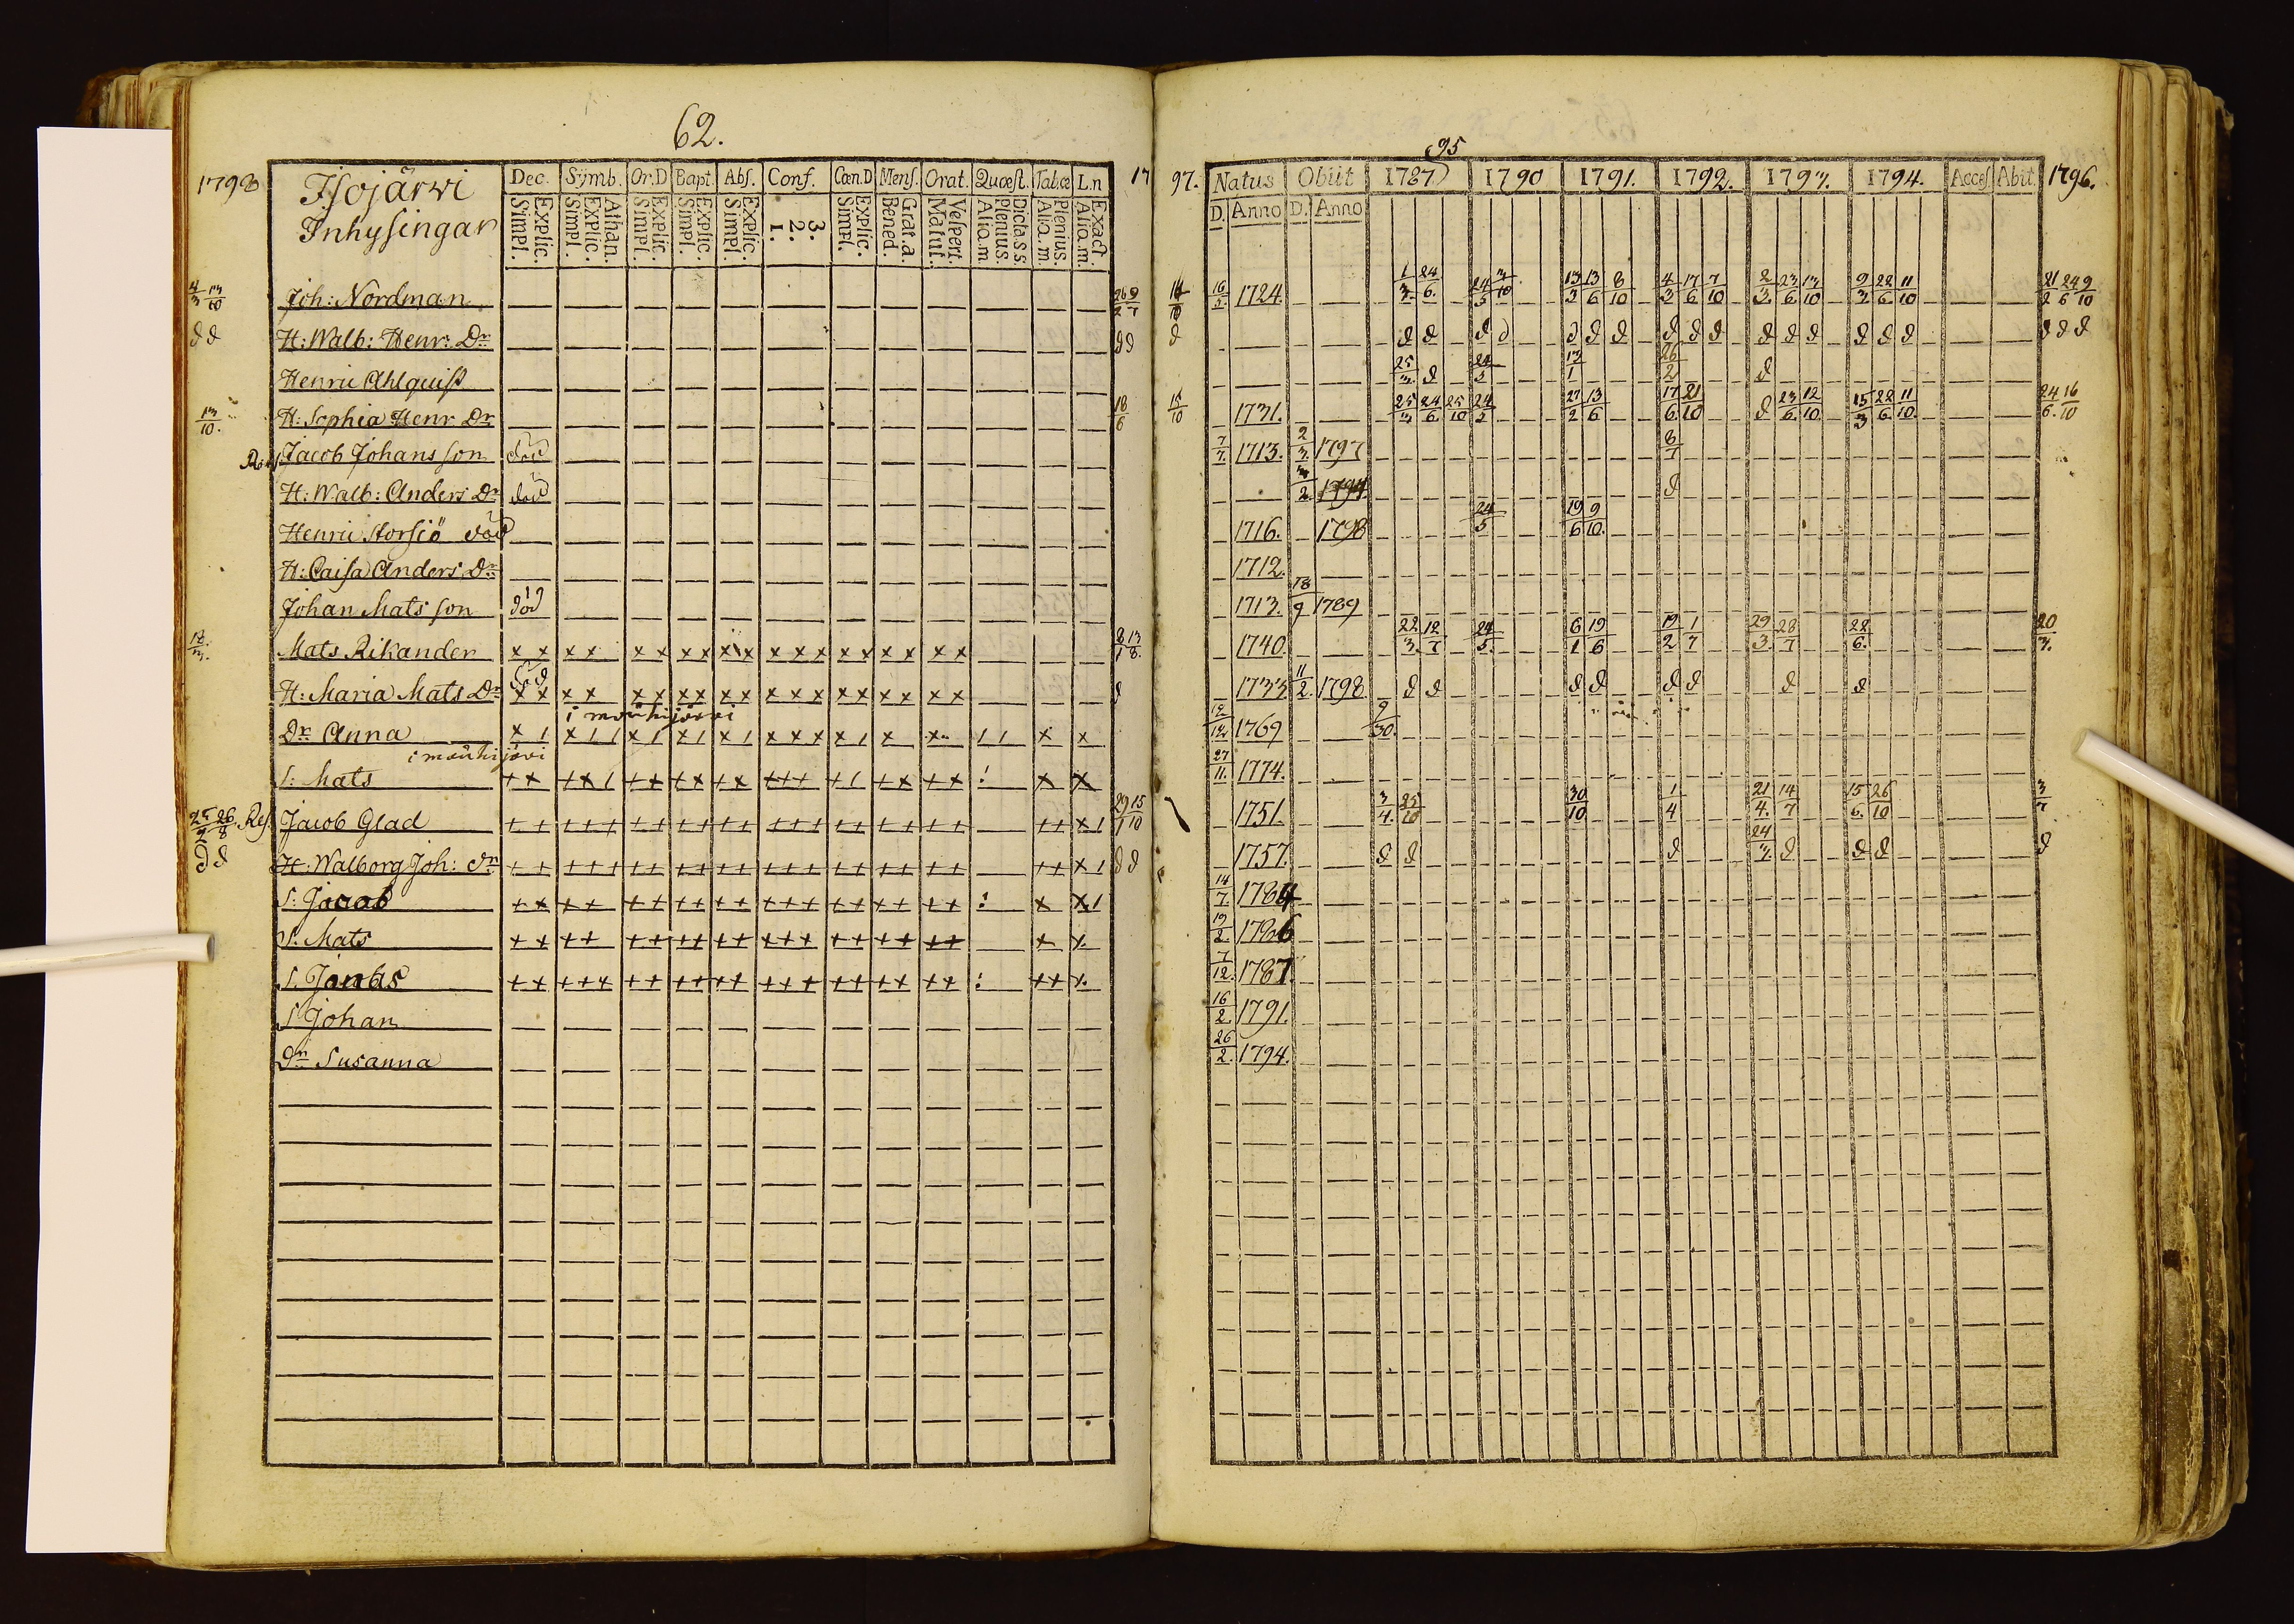 62.
1798
Isojärwi
Inhysingar
Dec. Symb. Or.D Bapt. Abs. Conf. Cœn.D Mens. Orat. Quæst. Tabæ L.n
Explic. Simpl. Athan. Explic. Simpl. Explic. Simpl. Explic. Simpl. Explic. Simpl. 3. 2. 1. Explic. Simpl. Grat.a. Bened. Velpert. Matut. Dicta s.s. Plenius. Alia.m. Plenius. Alia.m. Exact. Alia.m.
17
Joh: Nordman
H: Walb: Henr: Dr
Henric Ahlquist
H: Sophia Henr Dr
Jacob Johans son död
H: Walb: Anders Dr död
Henric Storsjö död
H: Caisa Anders Dr
Johan Mats son död
Mats Rikander x x x x x x x x x x x x x x x x x x x
H: Maria Mats Dr död x x x x x x x x x x x x x x x x x x x
i mouhijärvi
Dr Anna
i mouhijärvi
S: Mats
Jacob Glad
H: Walborg Joh: dr
S: Jacob
S: Mats
S. Jonas
S Johan
Dr Susanna
95
97. Natus Obiit 1787 1790 1791. 1792. 1793. 1794. Acces Abit. 1796.
D. Anno D. Anno
16/5 1724 1/3 24/6 24/5 3/10 13/3 13/6 8/10 4/3 17/6 7/10 2/3 23/6 13/10 9/3 22/6 11/10 21/2 24/6 9/10
d d d d d d d d d d d d d d d d d d
25/3 d 24/5 13/1 26/2 d
1731. 25/3 24/6 25/10 24/2 27/2 13/6 17/6 21/10 d 23/6 12/10 15/3 22/6 11/10 24/6 16/10
7/7 1713. 2/3 1797 8/7
3/2 1794 d
1716. 1798 24/5 19/6 9/10
1712.
1713. 18/9 1789
1740. 22/3 12/7 24/5 6/1 19/6 19/2 1/7 29/3 28/7 22/6 20/3
1733 11/2 1798 d d d d d d d d
12/12 1769 9/30
27/11 1774.
1751. 3/4 25/10 30/10 1/4 21/4 14/7 15/6 26/10 3/7
1757. d d d 24/3 d d d d
14/7 1784
19/2 1786
7/12 1787
16/2 1791.
26/2 1794.